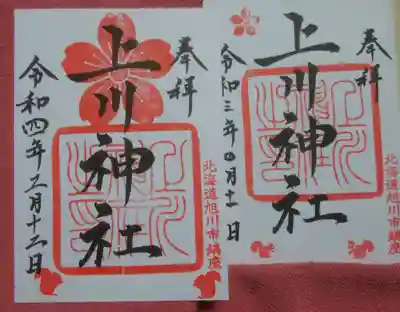 奉拝
上川神社
令和四年二月十二日
北海道旭川市鎮座
奉拝
上川神社
令和三年四月十一日
北海道旭川市鎮座